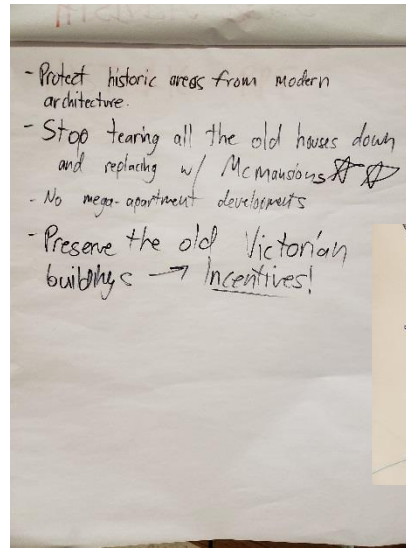 - Protect historic areas from modern
architecture.
- Stop tearing all the old houses down
and replacing w/ Mcmansions
- No mega-apartment developments
- Preserve the old Victorian
buildings → Incentives!